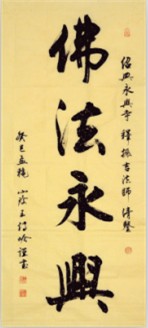 紹興永興寺 釋振吉法師清鑒
佛法永興
癸巳孟秋 山陰王
謹書